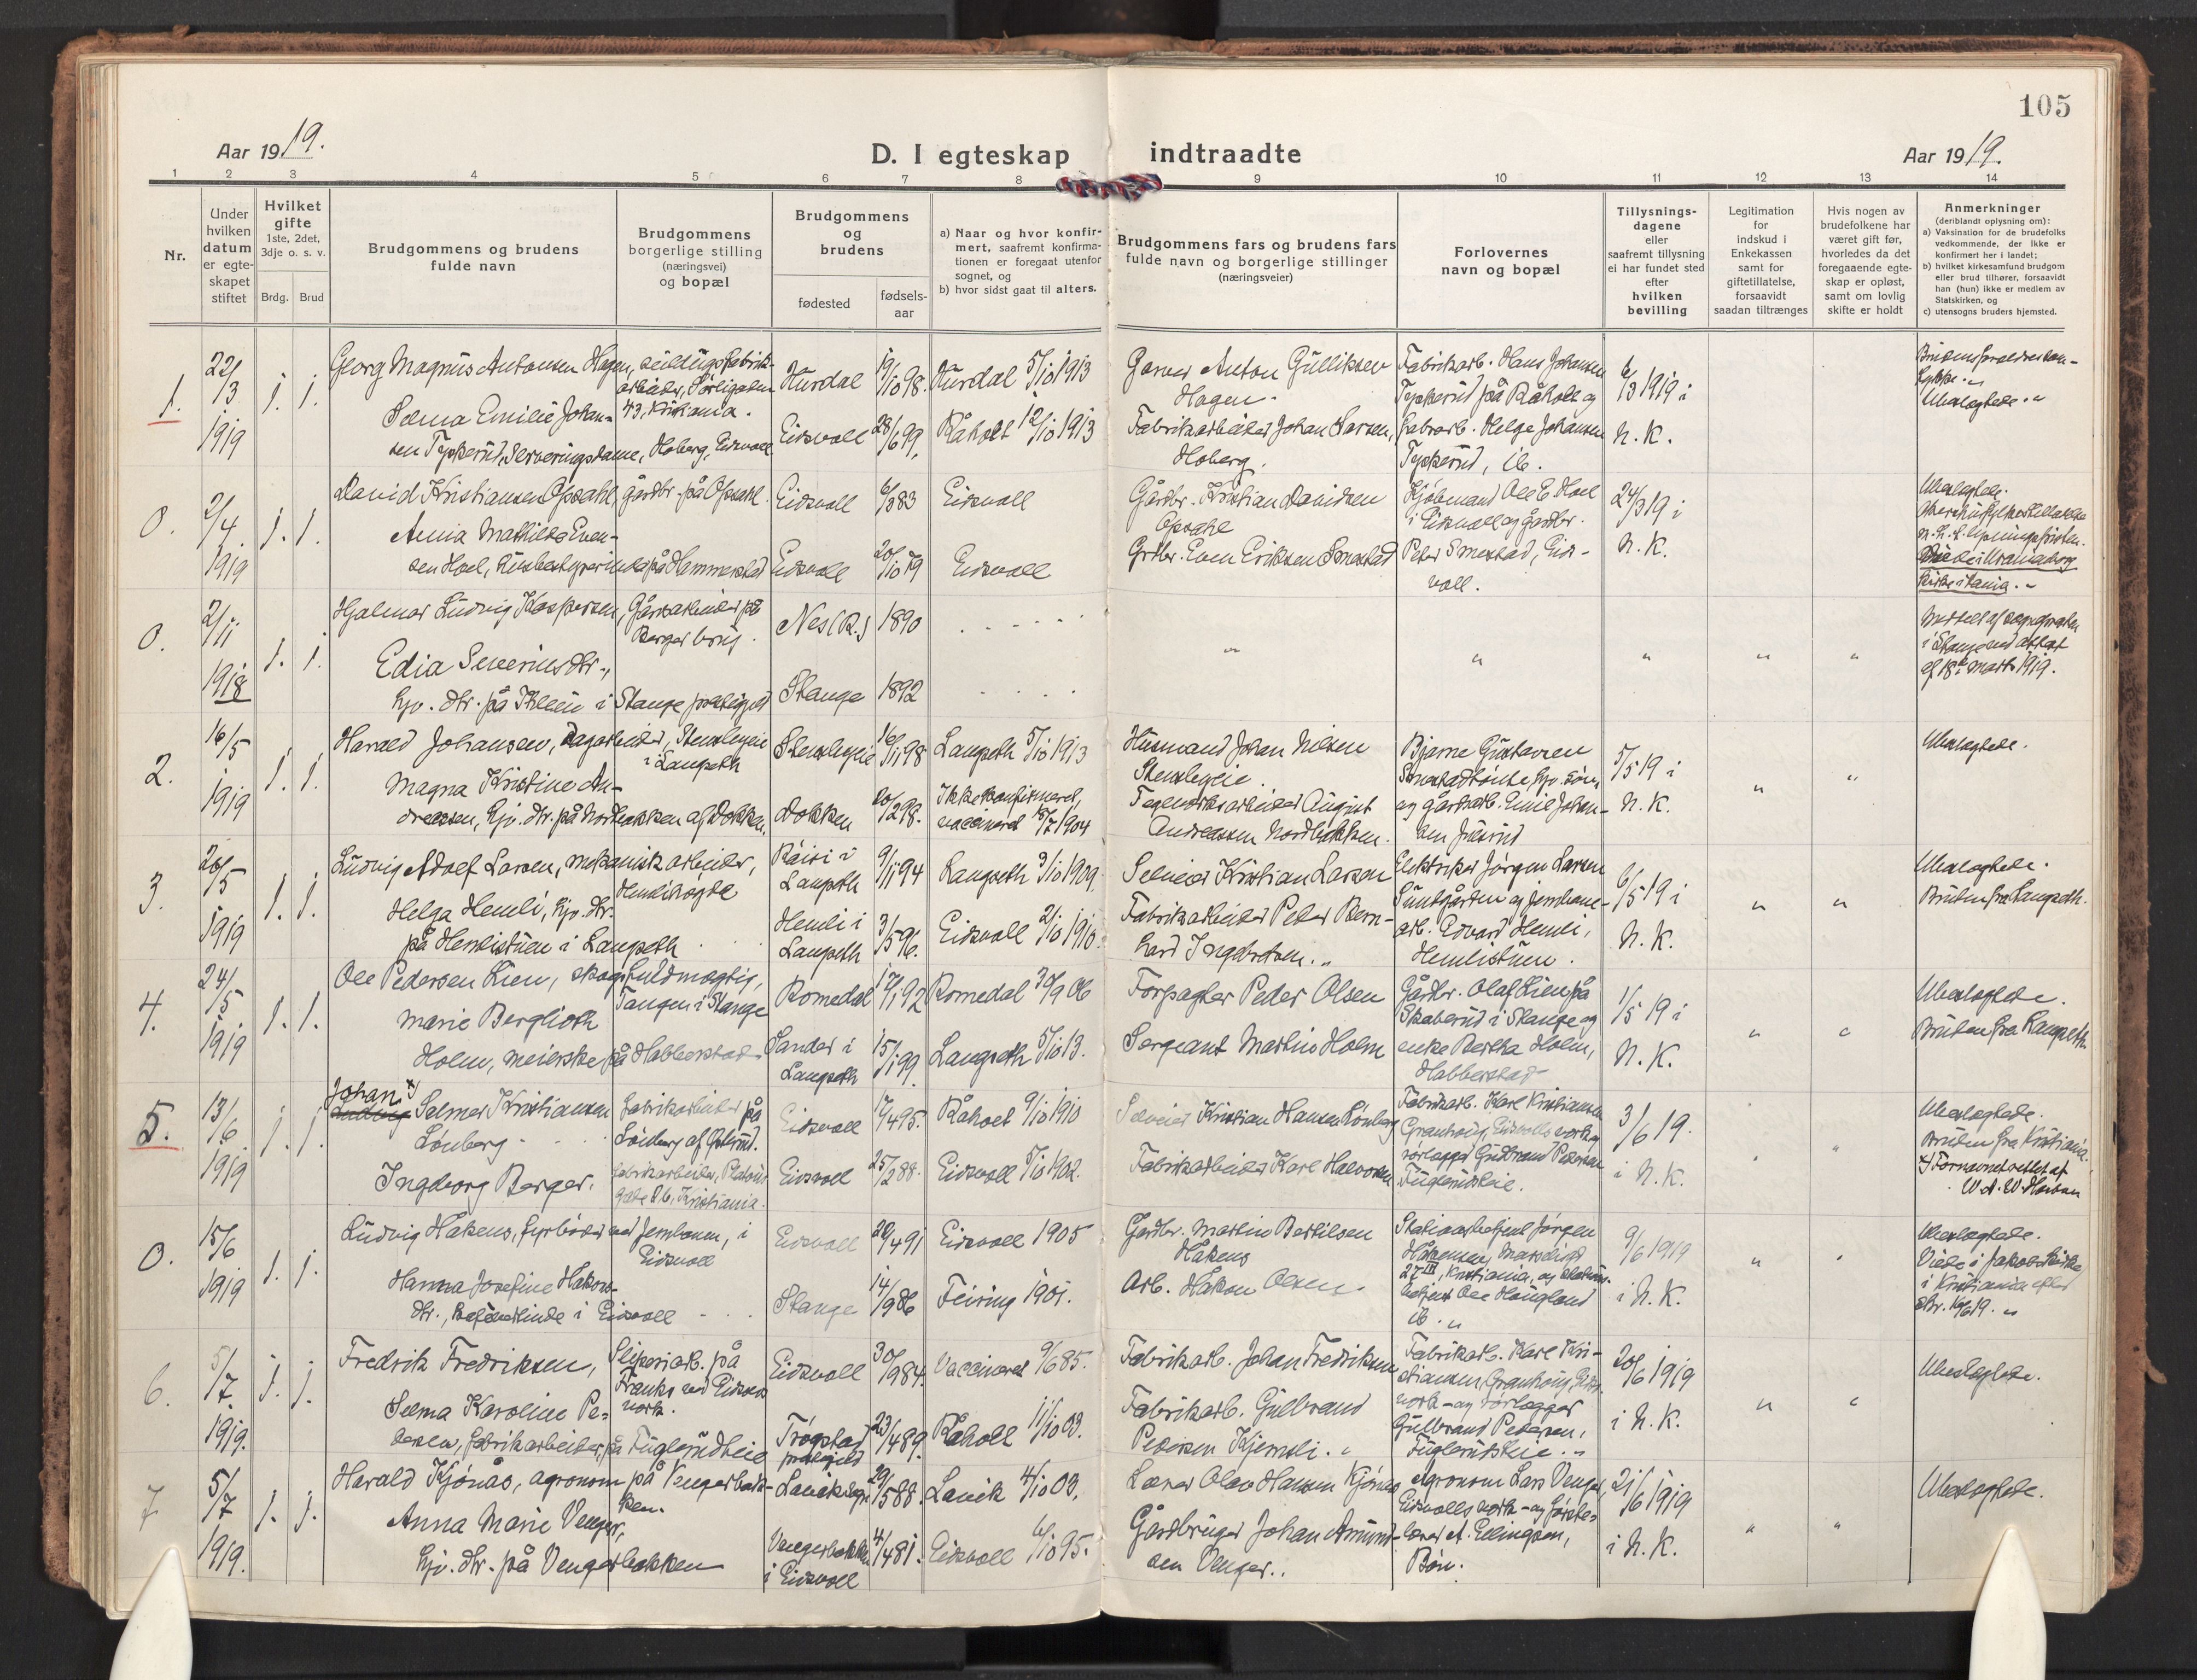 105
Aar 1919.
D. I egteskap indtraadte
Aar 1919.
1 2 3 4 5 6 7 8 9 10 11 12 13 14
Nr.
Under hvilken datum er egteskapet stiftet
Hvilket gifte 1ste, 2det, 3dje o. s. v.
Brdg. Brud
Brudgommens og brudens fulde navn
Brudgommens borgerlige stilling (næringsvei) og bopæl
Brudgommens og brudens
fødested
fødsels-aar
a) Naar og hvor konfirmert, saafremt konfirmationen er foregaat utenfor sognet, og
b) hvor sidst gaat til alters.
Brudgommens fars og brudens fars fulde navn og borgerlige stillinger (næringsveier)
Forlovernes navn og bopæl
Tillysningsdagene eller saafremt tillysning ei har fundet sted efter hvilken bevilling
Legitimation for indskud i Enkekassen samt for giftetillatelse, forsaavidt saadan tiltrænges
Hvis nogen av brudefolkene har været gift før, hvorledes da det foregaaende egteskap er opløst, samt om lovlig skifte er holdt
Anmerkninger
(deriblandt oplysning om):
a) Vaksination for de brudefolks vedkommende, der ikke er konfirmert her i landet;
b) hvilket kirkesamfund brudgom eller brud tilhører, forsaavidt han (hun) ikke er medlem av Statskirken, og
c) utensogns bruders hjemsted.
1. 22/3 1919 1. 1.
Georg Magnus Antonsen Hagen,
arbeider, 43, Kristiania.
Hurdal 19/10 98. Hurdal 5/10 1913
Garver Anton Gulliksen Hagen.
Fabrikarb. Hans Johansen Tykkerud på Råholt og
6/3 1919 i N. K.
Selma Emilie Johansen Tykkerud, Serveringsdame, Hoberg, Eidsvoll
Eidsvoll 28/6 99. Råholt 12/10 1913
Fabrikarbeider Johan Larsen, Hoberg.
fabrarb. Helge Johansen Tykkerud, ib.
Ubeslegtede. "
0. 2/4 1919 1. 1.
David Kristiansen Opsahl, gårdbr. på Opsahl.
Eidsvoll 6/3 83 Eidsvoll
Gårdbr. Kristian Davidsen Opsahl
Kjøbmand Ole E. Hoel i Eidsvoll og gårdbr.
24/3 19 i N. K.
Anna Mathilde Evensen Hoel, Husbestyrerinde på Hammerstad
Eidsvoll 20/10 79 Eidsvoll
Grdbr. Even Eriksen Smestad
Peter Smestad, Eidsvoll.
Ubeslegtede.
0. 2/11 1918 1. 1.
Hjalmar Ludvig Kaspersen, Gårdsarbeider på Berger brug.
Nes (R.) 1890
Edia Severinsdtr.,
hjv. dtr. på Kleiv i Stange prestegjeld
Stange 1892
" " " " "
i Stange ved attest af 18de marts 1919.
2. 16/5 1919 1. 1.
Harald Johansen, Dagarbeider, Stensbyeie i Langseth
Stensbyeie 16/11 98 Langseth 5/10 1913
Husmand Johan Nilsen Stensbyeie.
Bjarne Gustavsen
5/5 19 i N. K.
Ubeslegtede.
Magna Kristine Andreassen, hjv. dtr. på Nordbakken af Dokken.
Dokken 20/2 98. Ikke konfirmeret, vaccineret 18/7 1904
Teglverksarbeider August Andreassen Nordbakken.
og gårdsarb. Emil Johansen
3. 20/5 1919 1. 1.
Ludvig Adolf Larsen, mekanisk arbeider,
Langseth 9/1 94 Langseth 3/10 1909.
Selveier Kristian Larsen
Elektriker Jørgen Larsen
6/5 19 i N. K.
Helga Hemli, hjv. dtr. på Hemlistuen i Langseth
Hemli i Langseth 3/5 96. Eidsvoll 2/10 1910.
Fabrikarbeider Peter Bernhard Ingvartsen.
arb. Edvard Hemli, Hemlistuen.
Ubeslegtede.
Bruden fra Langseth.
4. 24/5 1919 1. 1.
Ole Pedersen Lien, skogfuldmægtig, Tangen i Stange
Romedal 17/1 92 Romedal 30/9 06
Forpagter Peder Olsen
Gårdbr. Olaf Lien på Skaberud i Stange og
1/5 19 i N. K.
Marie Bergljoth Holm, meierske på Habberstad
Sander i Langseth 15/1 99. Langseth 5/10 13.
Sergeant Martin Holm
enke Bertha Holm, Habberstad
Ubeslegtede.
Bruden fra Langseth.
5. 13/6 1919 1. 1.
Johan x) Ludvig Selmer Kristiansen Lønberg
fabrikarbeider på Lønberg af Østerud.
Eidsvoll 17/4 95. Råholt 9/10 1910
Selveier Kristian Hansen Lønberg
Fabrikarb. Karl Kristiansen Granhoug, Eidsvolls verk og
3/6 19. i N. K.
Ingeborg Berger.
fabrikarbeider, Kristiania.
Eidsvoll 25/2 88. Eidsvoll 5/10 1902.
Fabrikarbeider Karl Halvorsen
rørlægger Gudbrand Pedersen Fuglerudseie.
Ubeslegtede.
Bruden fra Kristiania.
x) Fornavnet rettet af
0. 15/6 1919 1. 1.
Ludvig Håkens, fyrbøter ved Jernbanen, i Eidsvoll
Eidsvoll 20/4 91 Eidsvoll 1905
Gårdbr. Martin Bertilsen Håkens
Stationsbetjent Jørgen
27 III, Kristiania, og
9/6 1919 i N. K.
Hanna Josefine Håkonsdtr., i Eidsvoll
Stange 14/9 86 Feiring 1901.
Arb. Håkon Olsen
betjent Ole Haugland ib. "
Ubeslegtede.
Viede i Jakobs kirke i Kristiania
6. 5/7 1919. 1. 1.
Fredrik Fredriksen, Sliperiarb. på
Eidsvoll 30/9 84. Vaccineret 9/6 85.
Fabrikarb. Johan Fredriksen
Fabrikarb. Karl Kristiansen, Granhoug, Eidsv. verk - og rørlægger
20/6 1919 i N. K.
Selma Karoline Pedersen, fabrikarbeider, på Fuglerudseie
Trøgstad prestegjeld 23/4 89. Råholt 11/10 03.
Fabrikarb. Gulbrand Pedersen Kjemsli.
Gulbrand Pedersen, Fuglerudseie. "
Ubeslegtede.
7 5/7 1919. 1. 1.
Harald Kjønås, agronom på Vengerbakken.
29/5 88. Lavik 4/10 03.
Lærer Olav Hansen Kjønås
Agronom Lars Venger, Eidsvolls verk - og første-
21/6 1919 i N. K.
Anna Marie Venger, hjv. dtr. på Vengerbakken
Vengerbakken i Eidsvoll 4/4 81. Eidsvoll 6/10 95.
Gårdbruger Johan Amundsen Venger.
lærer A. Ellingsen, Bøn.
Ubeslegtede.